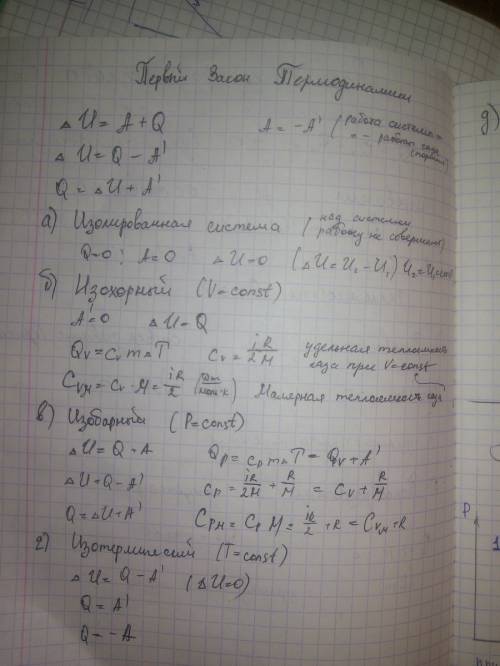 Первый Закон Термодинамики
ΔU = A + Q   A = -A' (работа системы = - работы газа
ΔU = Q - A'
Q = ΔU + A'
а) Изолированная система (над системой работу не совершают)
Q=0; A=0   ΔU=0   (ΔU = U₂ - U₁) U₂=U₁=const
б) Изохорный (V=const)
A'=0   ΔU=Q
Qv = Cv m ΔT   Cv = iR/2M   удельная теплоемкость газа при V=const
CvM = Cv · M = iR/2 (Дж/моль·К)   Малярная теплоемкость газа
в) Изобарный (P=const)
ΔU = Q - A   Qp = Cp m ΔT = Qv + A'
ΔU = Q - A'   Cp = iR/2M + R/M = Cv + R/M
Q = ΔU + A'   CpM = Cp M = iR/2 + R = CvM + R
г) Изотермический (T=const)
ΔU = Q - A'   (ΔU=0)
Q = A'
Q = -A
д)
P
1